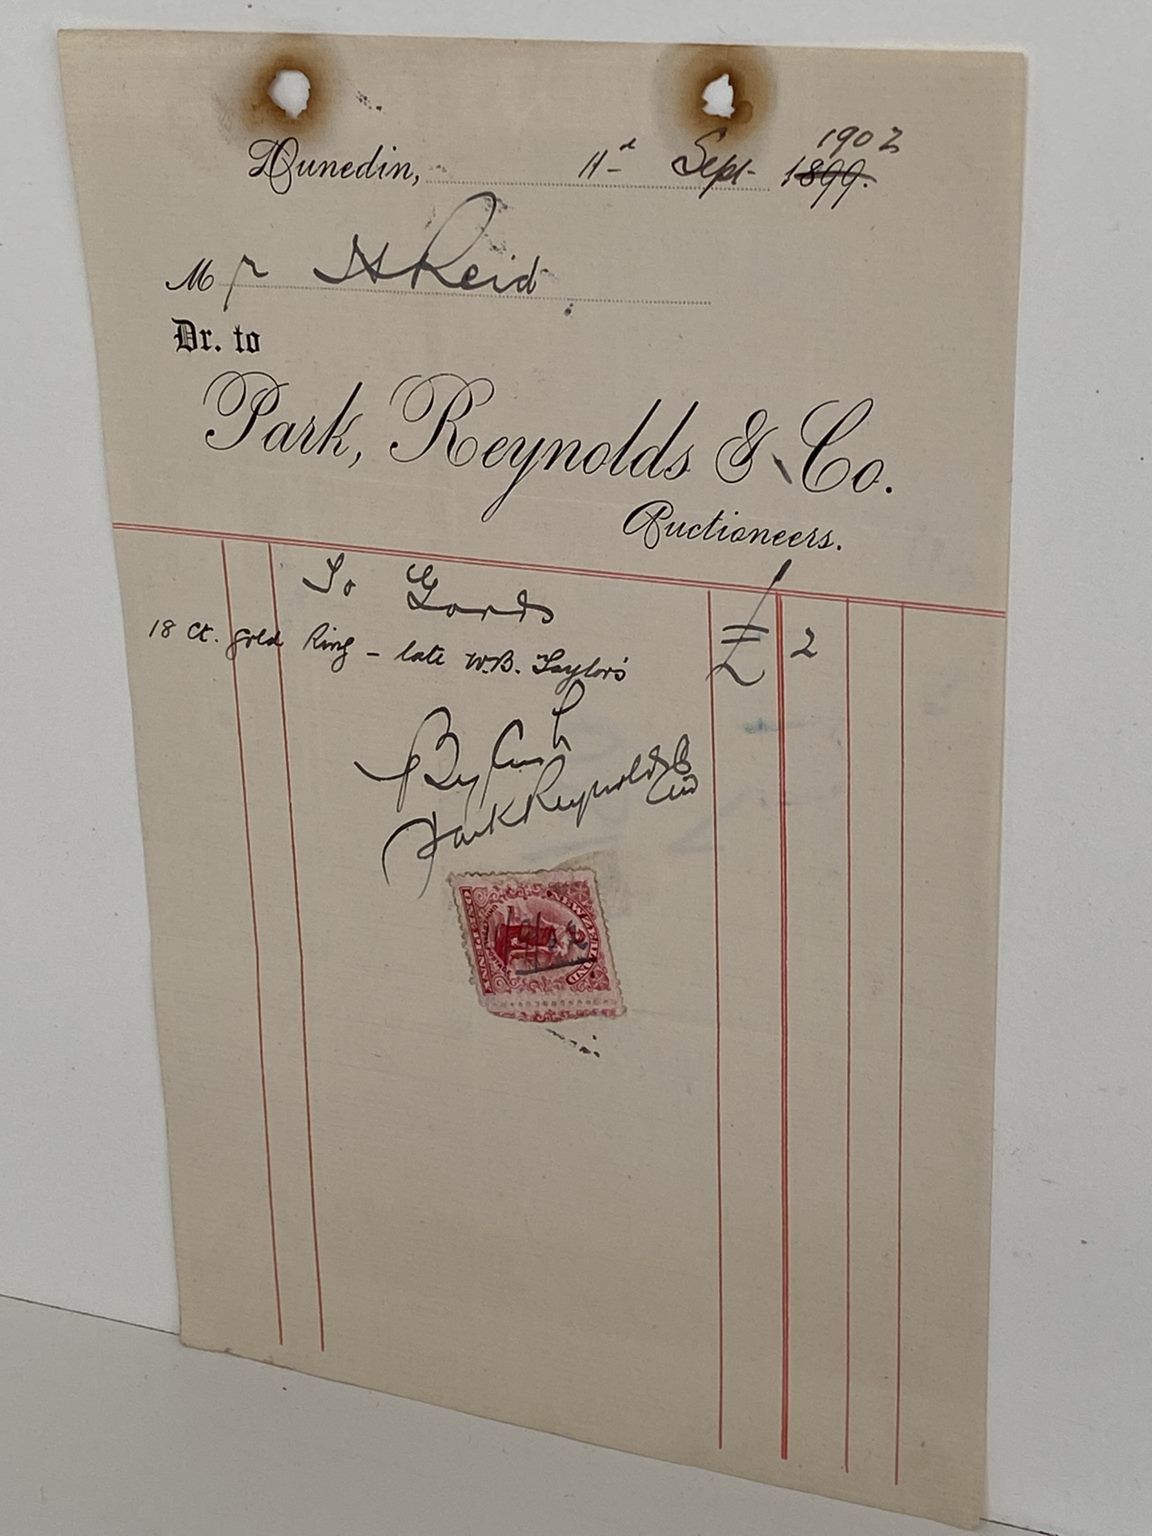 1902
Dunedin, 11th Sept 1899.
Mr H Reid
Dr. to
Park, Reynolds & Co.
Auctioneers.
To Goods
18 Ct. gold Ring – late W.B. Taylor's £ 2
By Cash
Park Reynolds & Co
NEW ZEALAND
11/9/02